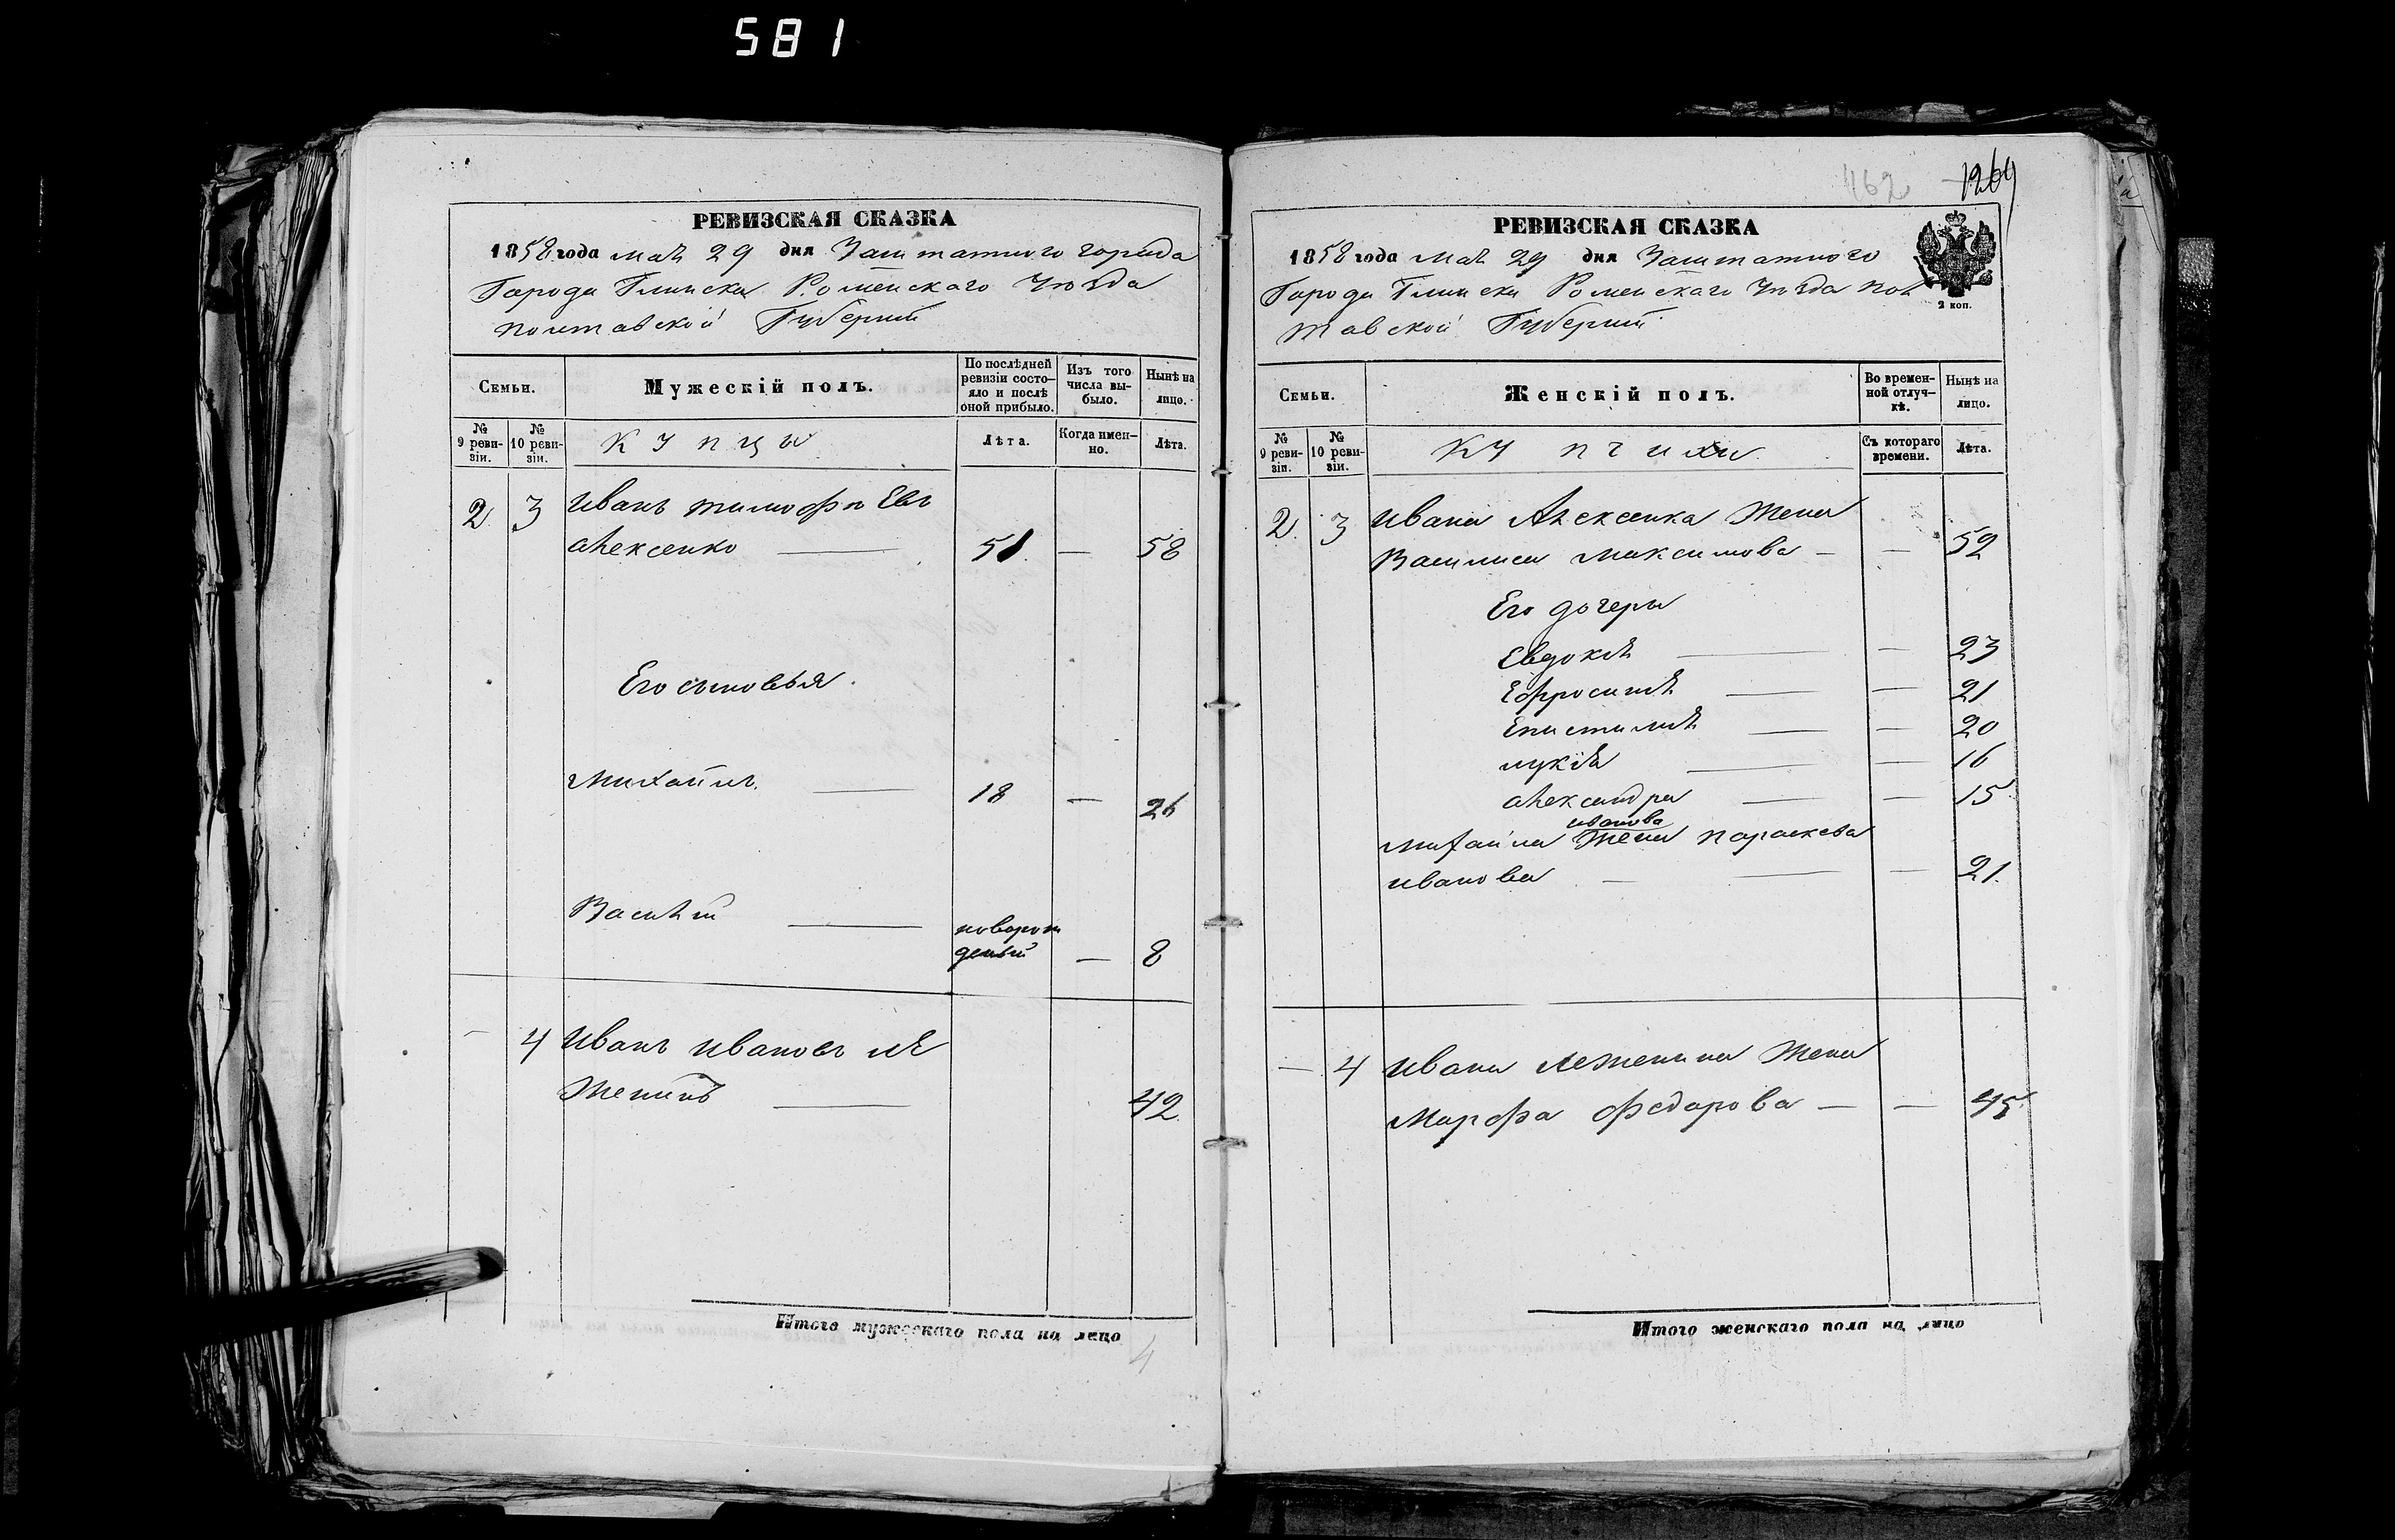 581
РЕВИЗСКАЯ СКАЗКА
1858 года маѣ 29 дня Заштатного города
Города Глинска Роменскаго Уѣзда
полтавской Губерніи
Семьи.
Мужескій полъ.
По послѣдней ревизіи состо-яло и послѣ оной прибыло.
Изъ того числа вы-было.
Нынѣ на лицо.
№ 9 реви-зіи.
№ 10 реви-зіи.
Купцы
Лѣта.
Когда имен-но.
Лѣта.
2 3 Иванъ тимофѣевъ
алексенко — 51. — 58
Его сыновья.
Михаилъ. — 18 — 26
Василій — новорож
деный — 8
— 4 Иванъ ивановъ ле
женинъ — 42.
Итого мужескаго пола на лицо
4
462 1264
РЕВИЗСКАЯ СКАЗКА
1858 года маѣ 29 дня Заштатного
Города Глинска Роменскаго Уѣзда пол
тавской Губерніи
2 коп.
Семьи.
Женскій полъ.
Во времен-ной отлуч-кѣ.
Нынѣ на лицо.
№ 9 реви-зіи.
№ 10 реви-зіи.
Купчихи
Съ котораго времени.
Лѣта.
2. 3 Ивана Алексенка Жена
Василиса максимова — — 52
Его дочеры
Евдокія — — 23
Ефросинія — — 21
Епистимія — — 20
лукія — — 16
александра — — 15
иванова
михаила Жена параскева
иванова — — — 21.
— 4 Ивана леженина Жена
Марфа федарова — — 45.
Итого женскаго пола на лицо